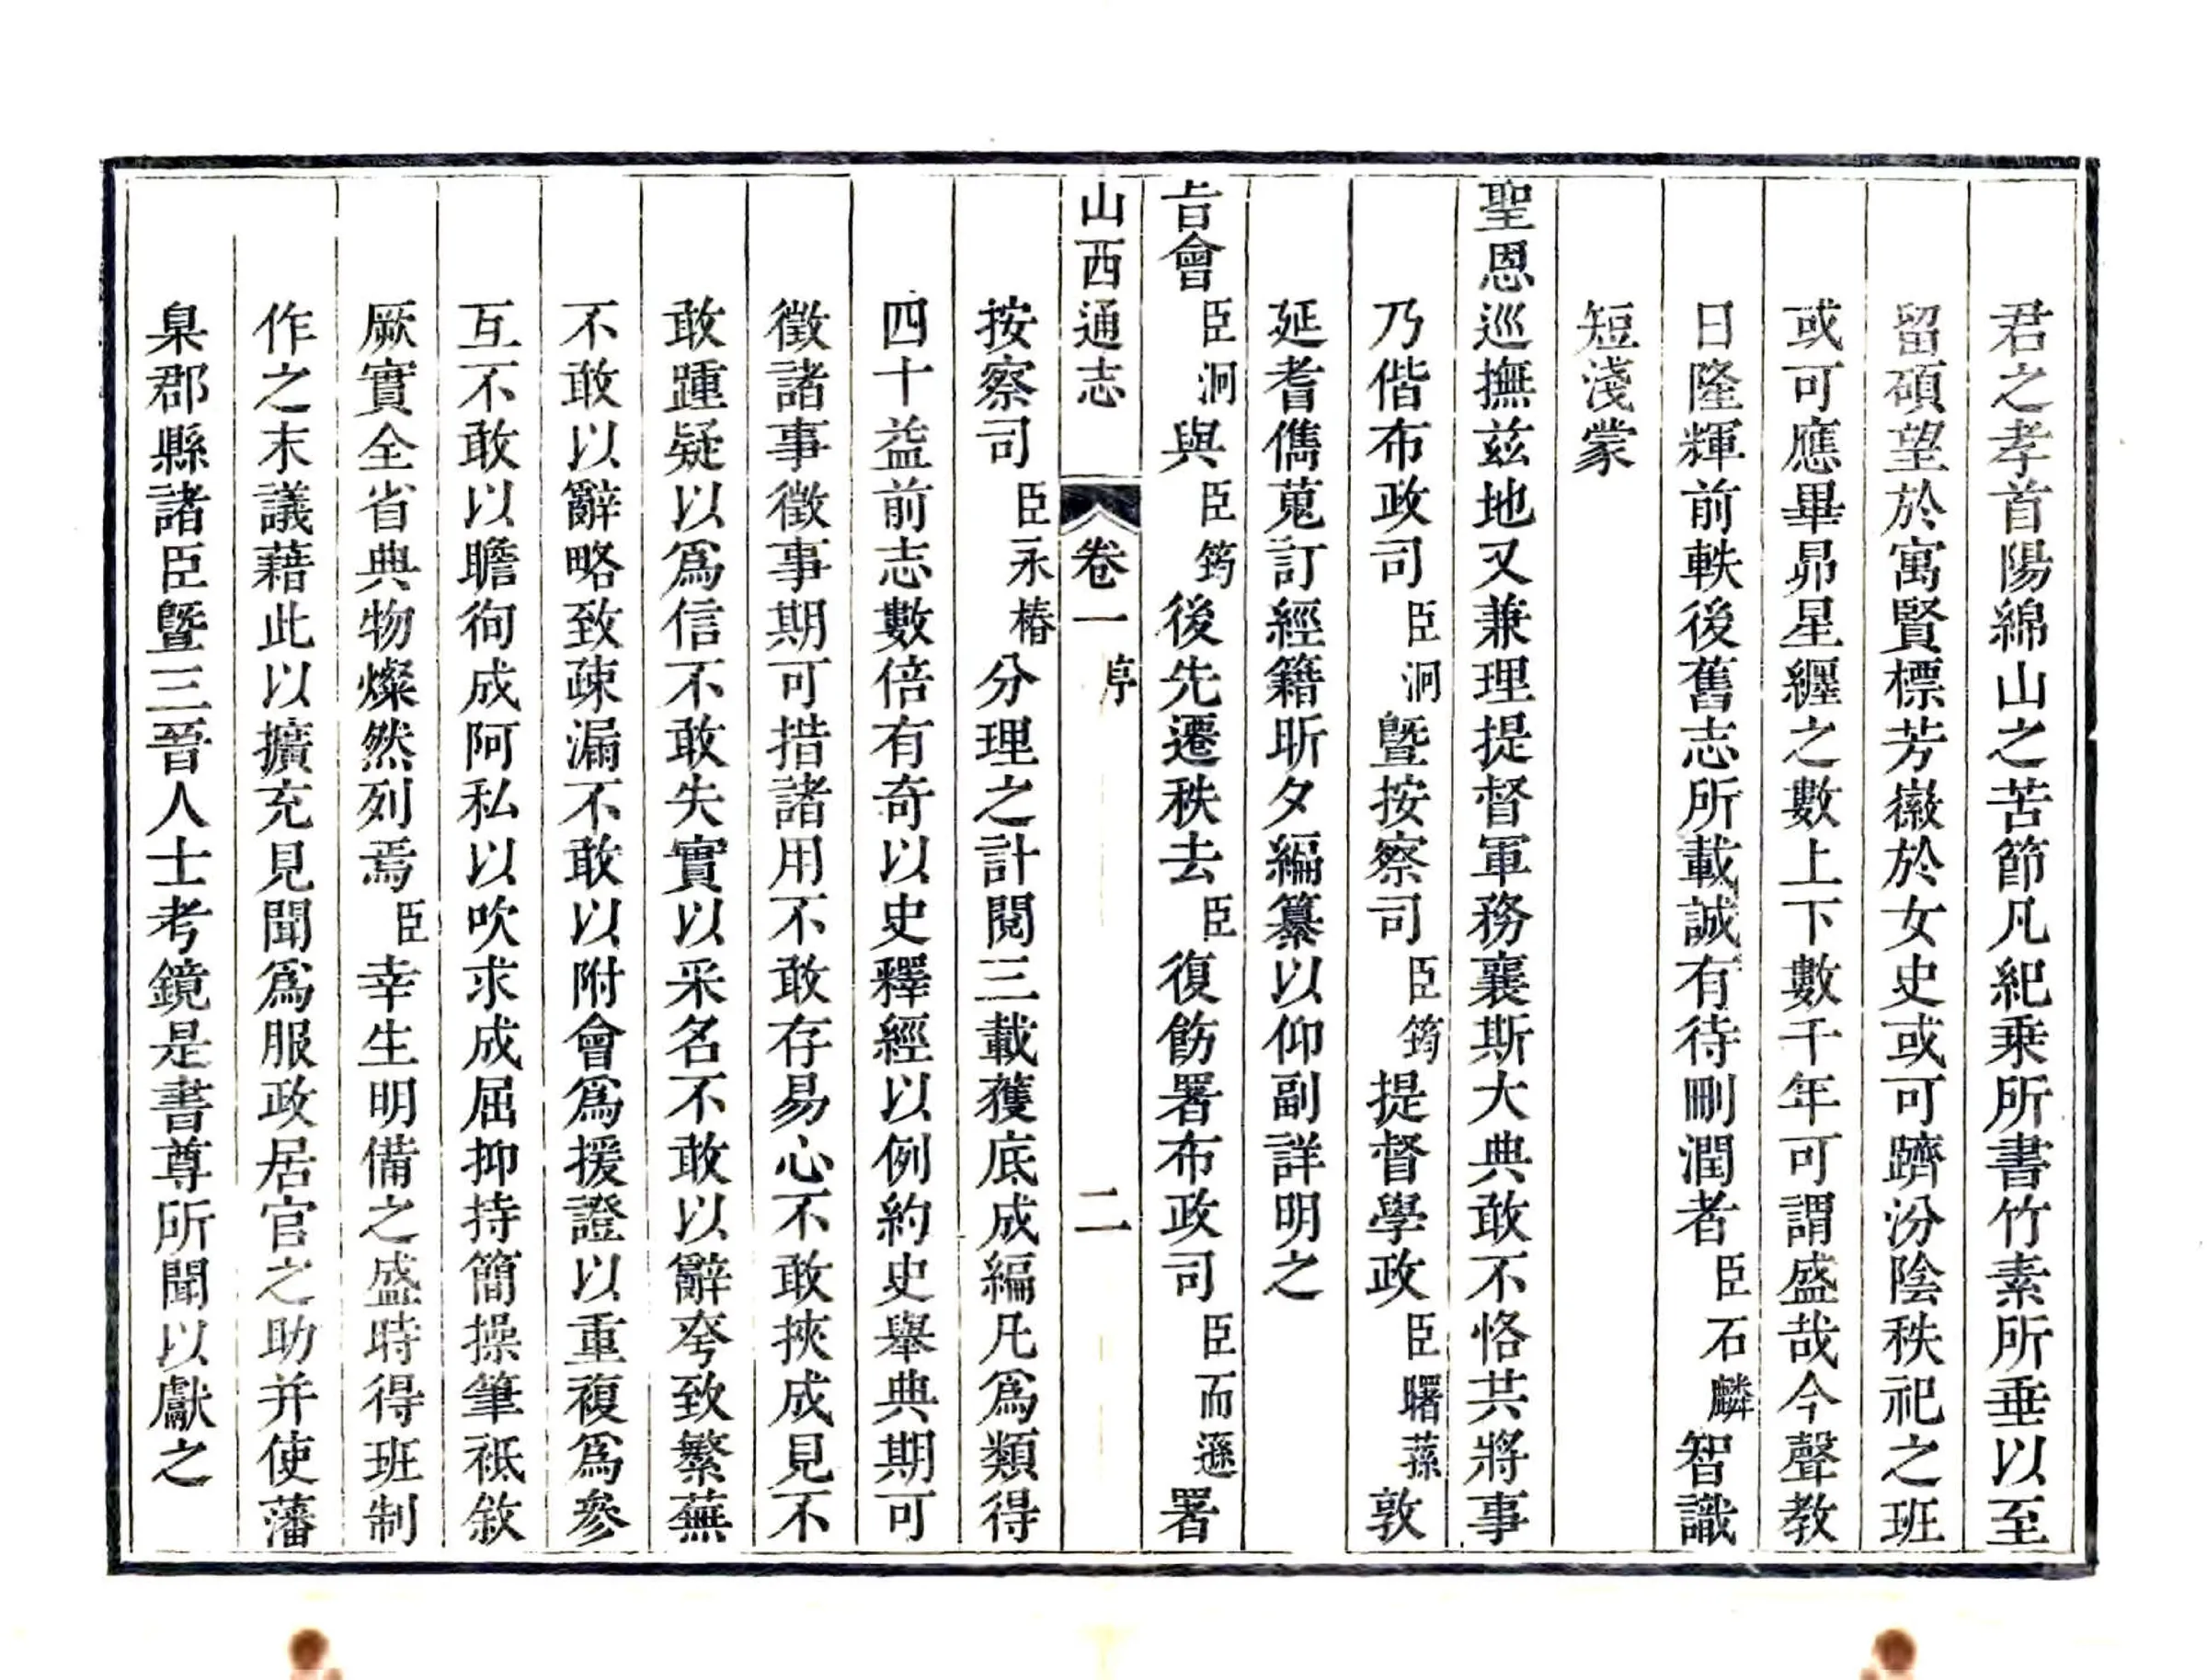 君之孝首陽綿山之苦節凡紀乗所書竹素所垂以至
留碩望於寓賢標芳徽於女史或可躋汾陰秩祀之班
或可應畢昴星纒之數上下數千年可謂盛哉今聲教
日隆輝前軼後舊志所載誠有待刪潤者臣石麟智識
短淺蒙
聖恩巡撫兹地又兼理提督軍務襄斯大典敢不恪共將事
乃偕布政司臣泂曁按察司臣筠提督學政臣曙蓀敦
延耆儁蒐訂經籍昕夕編纂以仰副詳明之
㫖會臣泂與臣筠後先遷秩去臣復飭署布政司臣而遜署
山西通志 卷一 序 二
按察司臣永椿分理之計閱三載獲底成編凡爲類得
四十益前志數倍有奇以史釋經以例約史舉典期可
徵諸事徵事期可措諸用不敢存易心不敢挾成見不
敢踵疑以爲信不敢失實以采名不敢以辭夸致繁蕪
不敢以辭略致疎漏不敢以附會爲援證以重複爲參
互不敢以瞻徇成阿私以吹求成屈抑持簡操筆祗敘
厥實全省典物燦然列焉臣幸生明備之盛時得班制
作之末議藉此以擴充見聞爲服政居官之助并使藩
臬郡縣諸臣曁三晉人士考鏡是書尊所聞以獻之